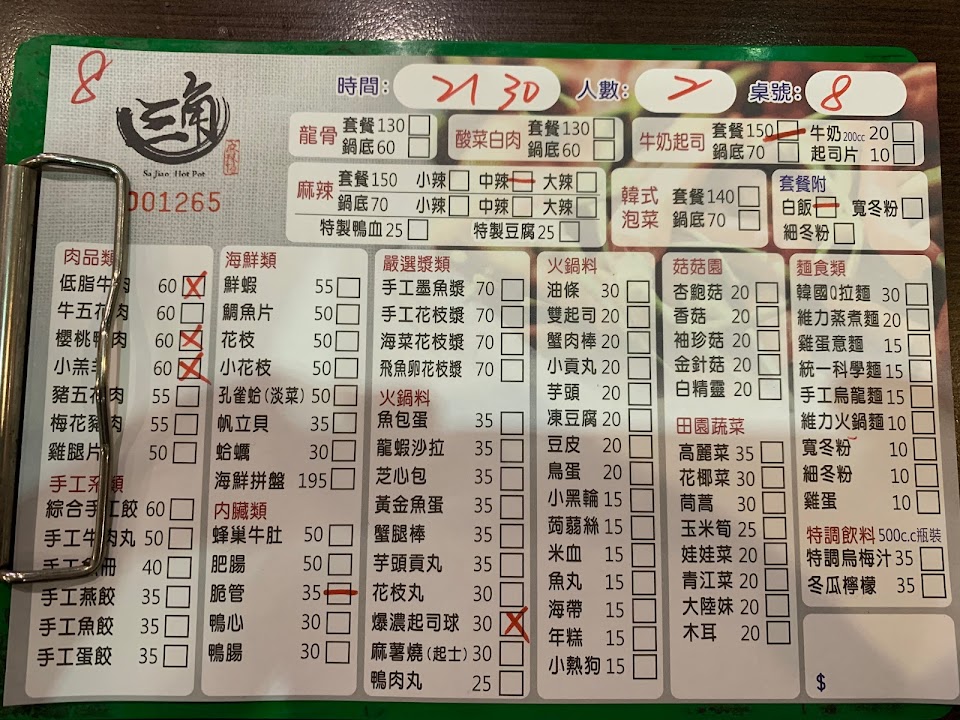 8
三角
麻辣鍋
Sa Jiao Hot Pot
001265
時間: 21 30 人數: 2 桌號: 8
龍骨 套餐130
鍋底60
酸菜白肉 套餐130
鍋底60
牛奶起司 套餐150 牛奶200cc 20
鍋底70 起司片 10
麻辣 套餐150 小辣 中辣 大辣
鍋底70 小辣 中辣 大辣
特製鴨血25 特製豆腐25
韓式泡菜 套餐140
鍋底70
套餐附
白飯 寬冬粉
細冬粉
肉品類
低脂牛肉 60
牛五花肉 60
櫻桃鴨肉 60
小羔羊 60
豬五花肉 55
梅花豬肉 55
雞腿片 50
手工系類
綜合手工餃 60
手工牛肉丸 50
40
手工燕餃 35
手工魚餃 35
手工蛋餃 35
海鮮類
鮮蝦 55
鯛魚片 50
花枝 50
小花枝 50
孔雀蛤(淡菜) 50
帆立貝 35
蛤蠣 30
海鮮拼盤 195
內臟類
蜂巢牛肚 50
肥腸 50
脆管 35
鴨心 30
鴨腸 30
嚴選漿類
手工墨魚漿 70
手工花枝漿 70
海菜花枝漿 70
飛魚卵花枝漿 70
火鍋料
魚包蛋 35
龍蝦沙拉 35
芝心包 35
黃金魚蛋 35
蟹腿棒 35
芋頭貢丸 35
花枝丸 30
爆濃起司球 30
麻薯燒(起士) 30
鴨肉丸 25
火鍋料
油條 30
雙起司 20
蟹肉棒 20
小貢丸 20
芋頭 20
凍豆腐 20
豆皮 20
鳥蛋 20
小黑輪 15
蒟蒻絲 15
米血 15
魚丸 15
海帶 15
年糕 15
小熱狗 15
菇菇園
杏鮑菇 20
香菇 20
袖珍菇 20
金針菇 20
白精靈 20
田園蔬菜
高麗菜 35
花椰菜 30
茼萵 30
玉米筍 25
娃娃菜 20
青江菜 20
大陸妹 20
木耳 20
麵食類
韓國Q拉麵 30
維力蒸煮麵 20
雞蛋意麵 15
統一科學麵 15
手工烏龍麵 15
維力火鍋麵 10
寬冬粉 10
細冬粉 10
雞蛋 10
特調飲料 500c.c瓶裝
特調烏梅汁 35
冬瓜檸檬 35
$